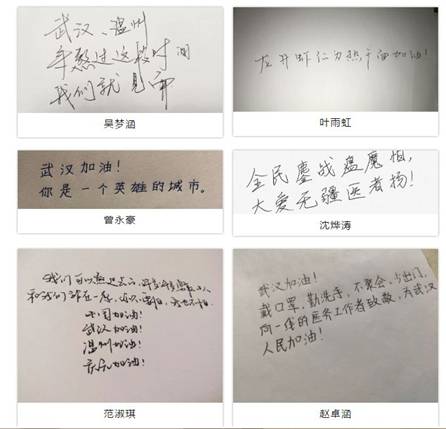 武汉、温州
辛熬过这段时间
我们就见面
吴梦涵
龙井虾仁为热干面加油！
叶雨虹
武汉加油！
你是一个英雄的城市。
曾永豪
全民鏖战瘟魔怕，
大爱无疆医者扬！
沈烨涛
我们可以
和我们站在一起
中国加油！
武汉加油！
温州加油！
加油！
范淑琪
武汉加油！
戴口罩，勤洗手，不聚会，少出门，
向一线的医务工作者致敬，为武汉
人民加油！
赵卓涵